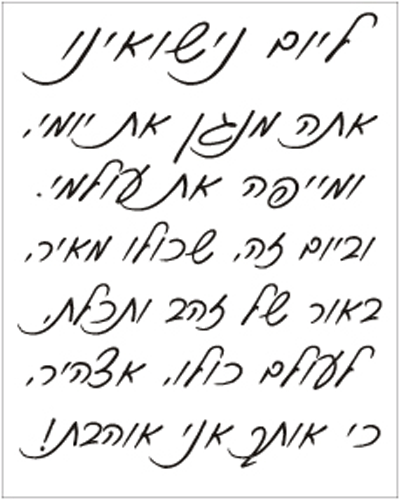 ליום נישואינו
אתה מנגן את יומי,
ומייפה את עולמי.
וביום זה, שכולו מאיר,
באור של זהב ותכלת,
לעולם כולו, אצהיר,
כי אותך אני אוהבת!